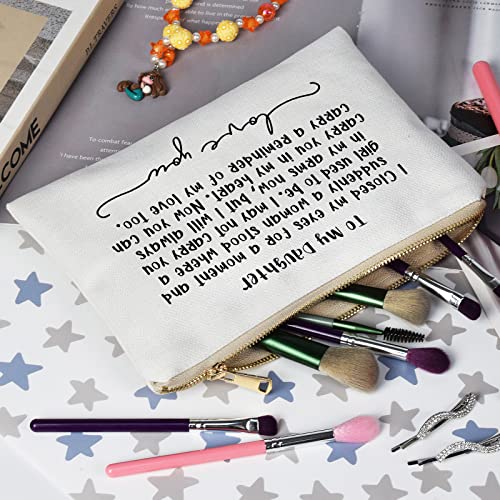 To My Daughter
I Closed my eyes for a moment and
suddenly a woman stood where a
girl used to be. I may not carry you
in my arms now, but I will always
carry you in my heart. Now you can
carry a reminder of my love too.
love you
COME